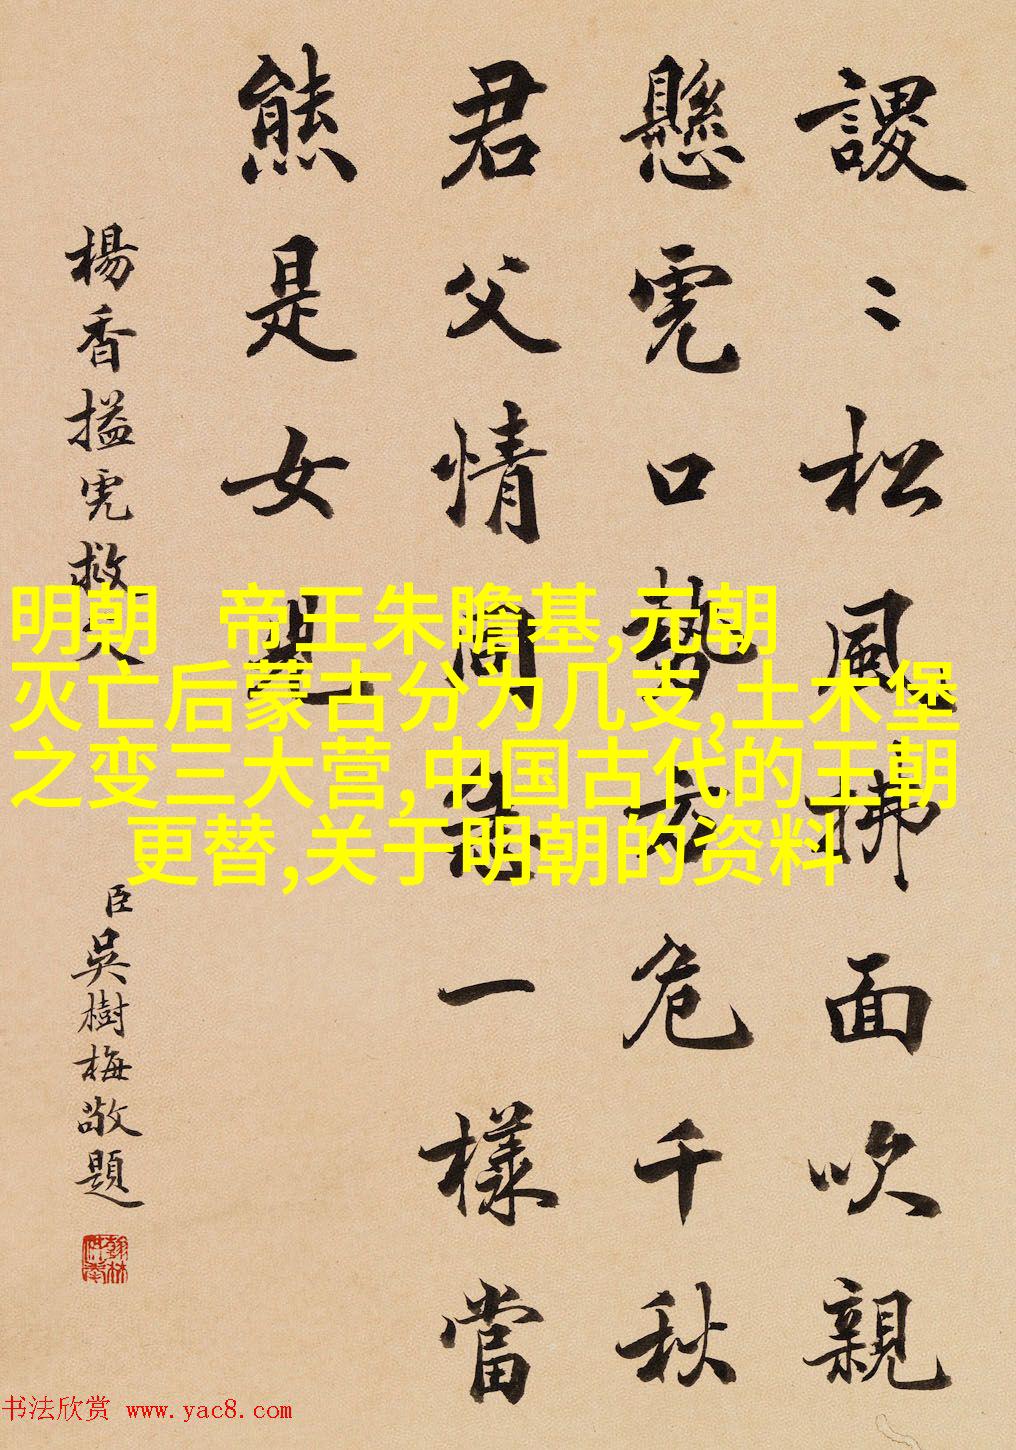 謖〻松風拂面吹親
懸虎口勢危千秋
君父情一樣當
熊是女
楊香搤虎救父
臣吳樹梅敬題
翰林供奉
明朝 帝王朱瞻基,元朝
灭亡后蒙古分为几支,土木堡
之变三大营,中国古代的王朝
更替,关于明朝的资料
书法欣赏 www.yac8.com